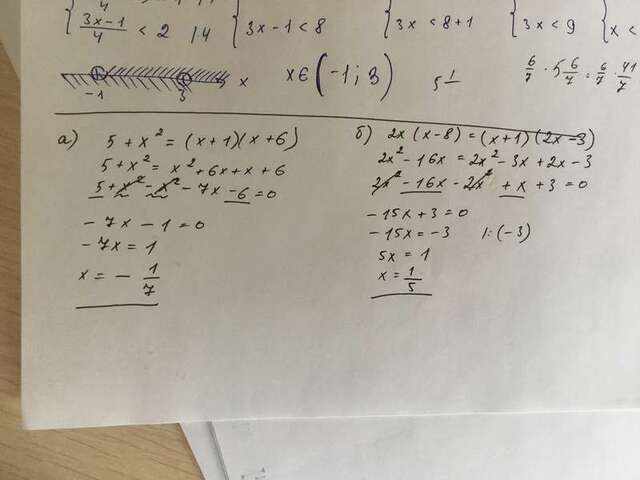 3x-1/4 < 2 | 4 { 3x-1 < 8 { 3x < 8+1 { 3x < 9 { x <
-1 3 x x ∈ (-1; 3) 6/7 · 5 6/7 = 6/7 · 41/7
а) 5 + x² = (x+1)(x+6)
5 + x² = x² + 6x + x + 6
5 + x² - x² - 7x - 6 = 0
- 7x - 1 = 0
- 7x = 1
x = - 1/7
б) 2x (x-8) = (x+1)(2x-3)
2x² - 16x = 2x² - 3x + 2x - 3
2x² - 16x - 2x² + x + 3 = 0
- 15x + 3 = 0
- 15x = -3 |:(-3)
5x = 1
x = 1/5